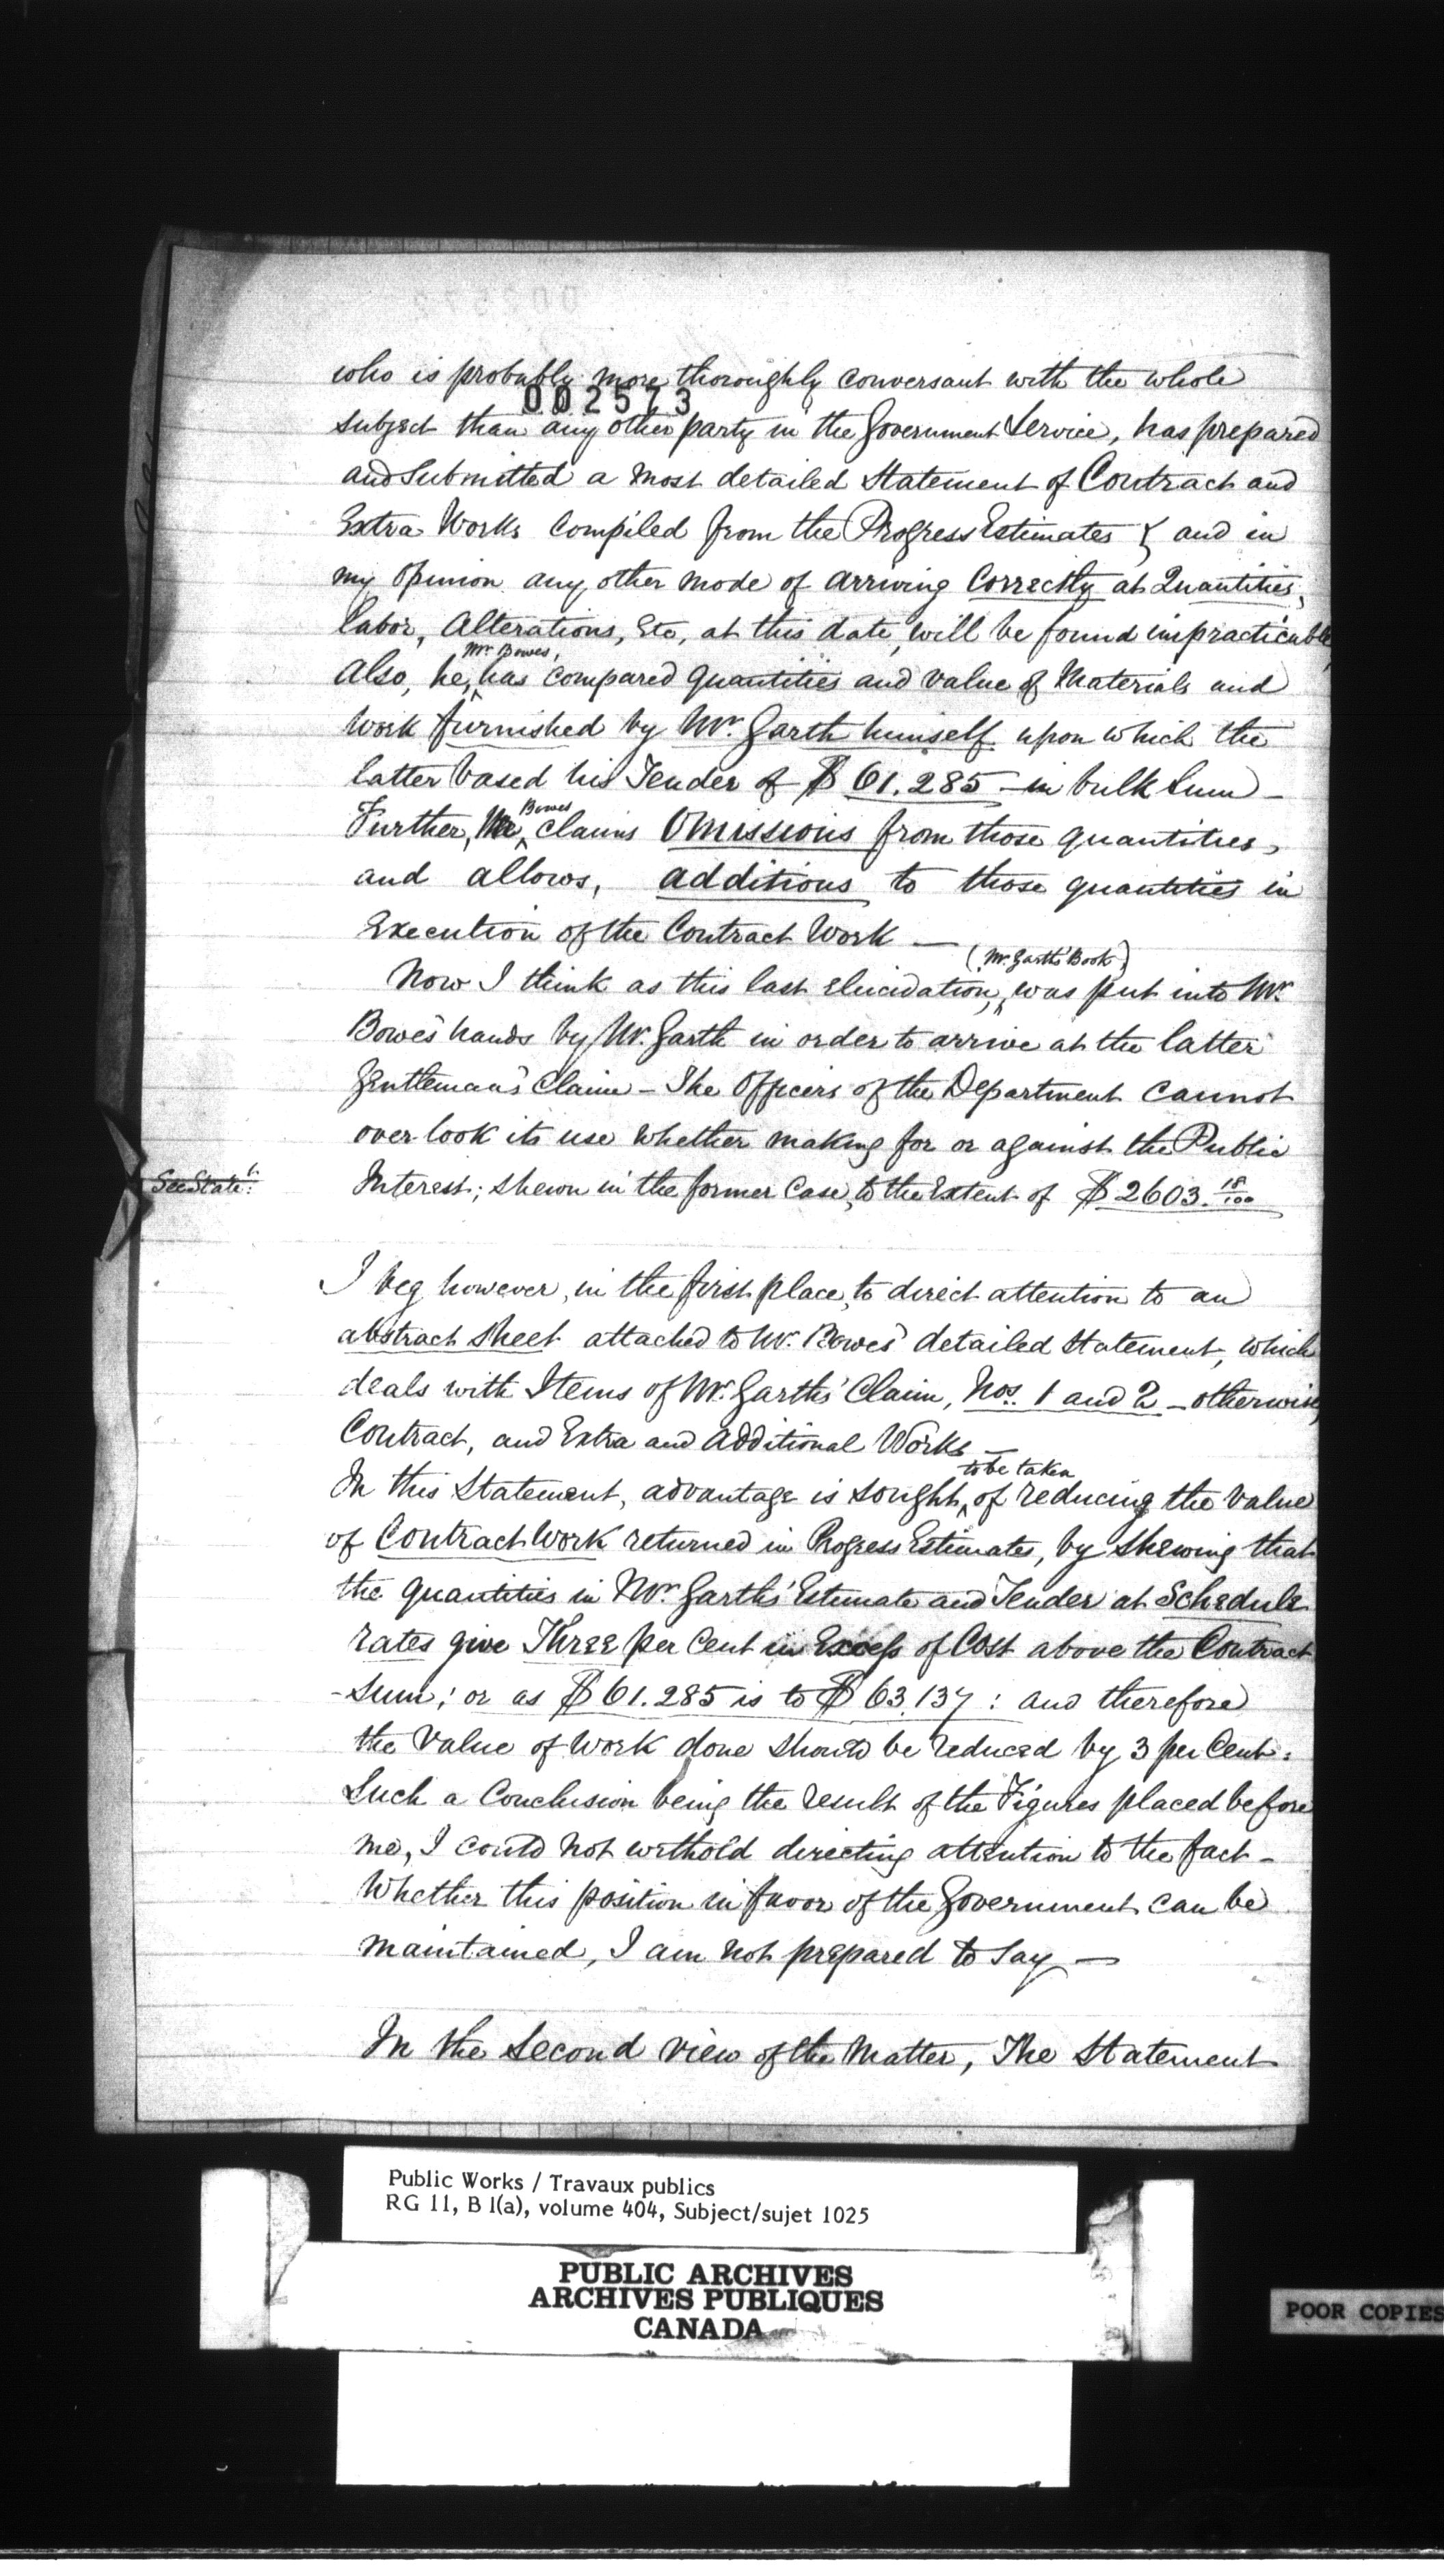 who is probably more thoroughly conversant with the whole
002573
subject than any other party in the Government Service, has prepared
and Submitted a most detailed Statement of Contract and
Extra Works Compiled from the Progress Estimates { and in
my Opinion any other mode of arriving Correctly at Quantities,
labor, Alterations, Etc, at this date, will be found impracticable,
Mr. Bowes,
Also, he, has compared quantities and value of Materials and
Work furnished by Mr. Garth himself upon which the
latter based his Tender of $ 61.285 – in bulk Sum –
Bowes
Further, Mr, claims Omissions from those quantities,
and allows, additions to those quantities in
Execution of the Contract Work —
(Mr. Garth's Book)
Now I think as this last elucidation, was put into Mr.
Bowes' hands by Mr. Garth in order to arrive at the latter
Gentleman's Claim – The Officers of the Department cannot
over look its use whether making for or against the Public
See Statet:
Interest; shewn in the former Case, to the Extent of $ 2603. 18/100
I beg however, in the first place, to direct attention to an
abstract sheet attached to Mr. Bowes' detailed Statement, which
deals with Items of Mr. Garths' Claim, Nos. 1 and 2 – otherwise,
Contract, and Extra and Additional Works —
to be taken
In this Statement, advantage is sought, of reducing the value
of Contract Work returned in Progress Estimates, by shewing that
the quantities in Mr. Garths' Estimate and Tender at Schedule
rates give Three per Cent in Excess of Cost above the Contract
-Sum; or as $ 61.285 is to $ 63,137 : and therefore
the Value of Work done should be reduced by 3 per Cent:
Such a Conclusion being the result of the Figures placed before
me, I could not withold directing attention to the fact –
Whether this position in favor of the Government can be
maintained, I am not prepared to say —
In the Second view of the Matter, The Statement
Public Works / Travaux publics
RG 11, B 1(a), volume 404, Subject/sujet 1025
PUBLIC ARCHIVES
ARCHIVES PUBLIQUES
CANADA
POOR COPIES